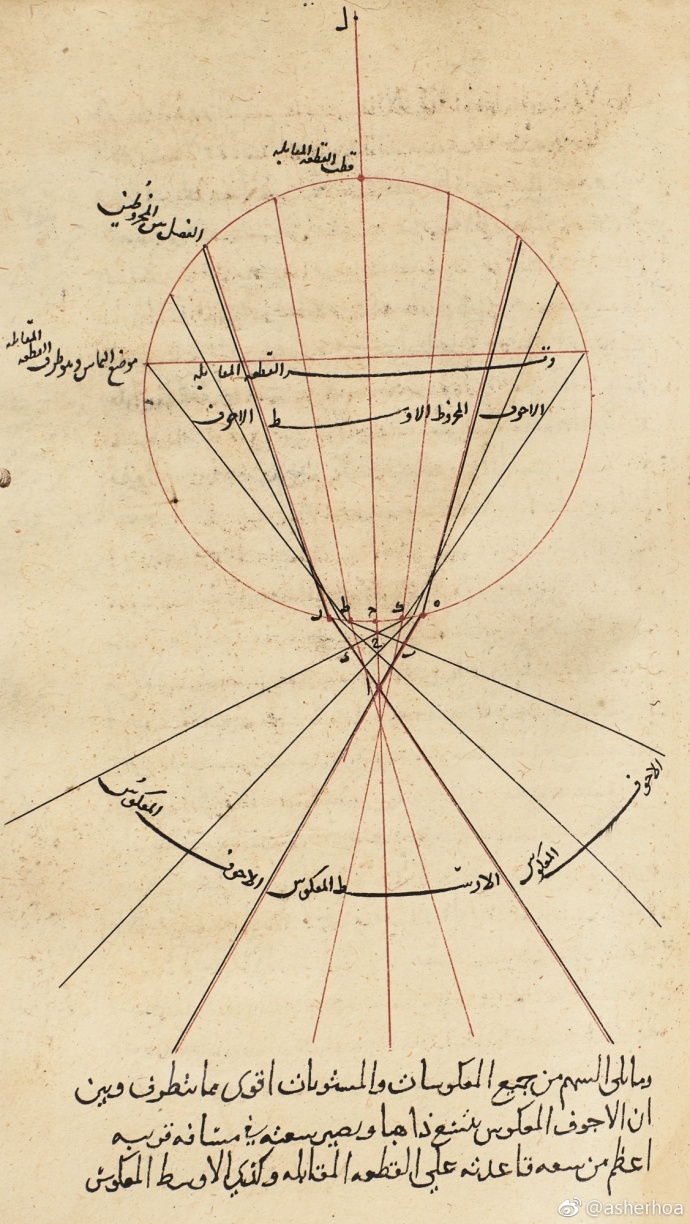 ل
قطب القطعه المقابله
الفصل بين المخروطين
موضع التماس وهو طرف القطعه المقابله
وتر القطعه المقابله
الاجوف المخروط الاوسط الاجوف
ه ك ح ط د
ا
الاجوف المعكوس
الاوسط المعكوس
الاجوف المعكوس
وما يلى السهم من جميع المعكوسات والمستويات اقوى مما يتطرف وبين
ان الاجوف المعكوس يتسع ذاهبا ويصير سعته فى مسافه قريبه
اعظم من سعه قاعدته على القطعه المقابله وكذى الاوسط المعكوس
@asherhoa